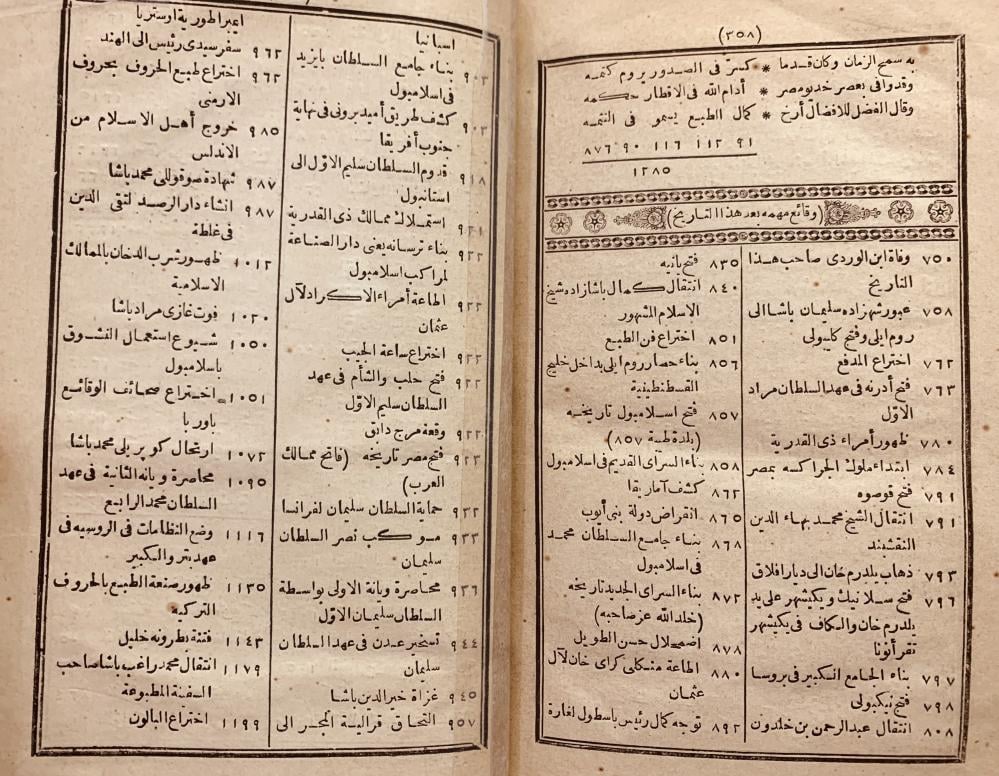 (٣٥٨)
به سمح الزمان وكان قدما * كسرّ فى الصدور بروم كتمه
وقد وافى بعصر خديو مصر * أدام الله فى الاقطار حكمه
وقال الفضل للافضال أرخ * كمال الطبع يسمو فى التتمه
٩١ ١١٢ ١١٦ ٩٠ ٨٧٦
١٢٨٥
(وقائع مهمه بعد هذا التاريخ)
٧٥٠ وفاة ابن الوردى صاحب هذا
التاريخ
٧٥٨ عبور شهزاده سليمان باشا الى
روم ايلى وفتح كليبولى
٧٦٢ اختراع المدفع
٧٦٣ فتح أدرنه فى عهد السلطان مراد
الاوّل
٧٨٠ ظهور أمراء ذى القدرية
٧٨٤ ابتداء ملوك الجراكسه بمصر
٧٩١ فتح قوصوه
٧٩١ انتقال الشيخ محمد بهاء الدين
النقشبند
٧٩٣ ذهاب يلدرم خان الى ديار افلاق
٧٩٦ فتح سلانيك ويكيشهر على يد
يلدرم خان والمكاف فى يكيشهر
تقرأ نونا
٧٩٧ بناء الجامع الكبير فى بروسا
٧٩٨ فتح نيكبولى
٨٠٨ انتقال عبد الرحمن بن خلدون
٨٣٥ فتح يانيه
٨٤٠ انتقال كمال باشا زاده شيخ
الاسلام المشهور
٨٥١ اختراع فن الطبع
٨٥٦ بناء حصار روم ايلى بداخل خليج
القسطنطينية
٨٥٧ فتح اسلامبول تاريخه
(بلدة طيبة ٨٥٧)
٨٥٨ بناء السراى القديم فى اسلامبول
٨٦٢ كشف آمريقا
٨٦٥ انقراض دولة بنى أيوب
٨٦٨ بناء جامع السلطان محمد
فى اسلامبول
٨٧٢ بناء السراى الجديد تاريخه
(خلد الله عز صاحبه)
٨٧٨ اضمحلال حسن الطويل
٨٨٠ اطاعة منكلى كراى خان لآل
عثمان
٨٩٢ توجه كمال رئيس باسطول لغارة
اسبانيا
٩٠٣ بناء جامع السلطان بايزيد
فى اسلامبول
٩٠٣ كشف طريق أميد برونى فى نهاية
جنوب أفريقا
٩١٨ قدوم السلطان سليم الاوّل الى
استانبول
٩٢١ استملاك ممالك ذى القدرية
٩٢٢ بناء ترسانه يعنى دار الصناعة
لمراكب اسلامبول
٩٢٢ اطاعة أمراء الاكراد لآل
عثمان
٩٢٢ اختراع ساعة الجيب
٩٢٢ فتح حلب والشأم فى عهد
السلطان سليم الاوّل
٩٢٢ وقعة مرج دابق
٩٢٣ فتح مصر تاريخه (فاتح ممالك
العرب)
٩٣٢ حماية السلطان سليمان لفرانسا
٩٣٣ موكب نصر السلطان
سليمان
٩٣٦ محاصرة ويانة الاولى بواسطة
السلطان سليمان الاوّل
٩٤٤ تسخير عدن فى عهد السلطان
سليمان
٩٤٥ غزاة خير الدين باشا
٩٥٧ التحاق قرالية المجر الى
اعبراطورية اوستريا
٩٦٢ سفر سيدى رئيس الى الهند
٩٦٢ اختراع طبع الحروف بحروف
الارمنى
٩٨٥ خروج أهل الاسلام من
الاندلس
٩٨٧ شهادة صوقوللى محمد باشا
٩٨٧ انشاء دار الرصد لتقى الدين
فى غلطة
١٠١٢ ظهور شرب الدخان بالممالك
الاسلامية
١٠٢٠ فوت غازى مراد باشا
١٠٥٠ شيوع استعمال النشوق
باسلامبول
١٠٥١ اختراع صحائف الوقائع
باوربا
١٠٧٢ ارتحال كوپريلى محمد باشا
١٠٩٥ محاصرة ويانه الثانية فى عهد
السلطان محمد الرابع
١١١٦ وضع النظامات فى الروسيه فى
عهد پترو الكبير
١١٣٥ ظهور صنعة الطبع بالحروف
التركيه
١١٤٣ فتنة بطرونه خليل
١١٧٩ انتقال محمد راغب باشا صاحب
السفينة المطبوعة
١١٩٩ اختراع البالون